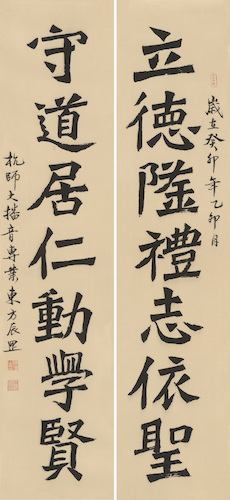 歲在癸卯年乙卯月
立德隆禮志依聖
守道居仁動學賢
杭師大播音專業東方辰